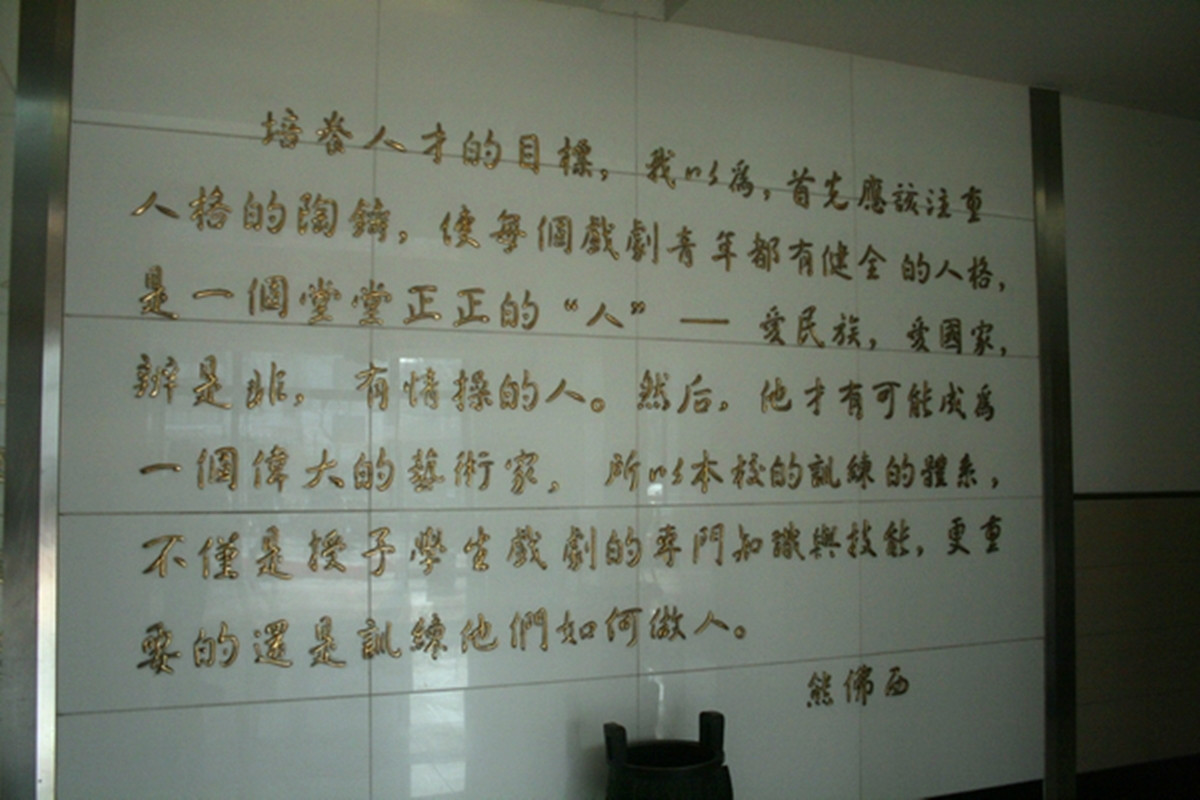 培养人才的目標，我以為，首先應該注重
人格的陶鑄，使每個戲劇青年都有健全的人格，
是一個堂堂正正的“人”——愛民族，愛國家，
辨是非，有情操的人。然后，他才有可能成為
一個偉大的藝術家，所以本校的訓練的體系，
不僅是授予學生戲劇的專門知識與技能，更重
要的還是訓練他們如何做人。
熊佛西